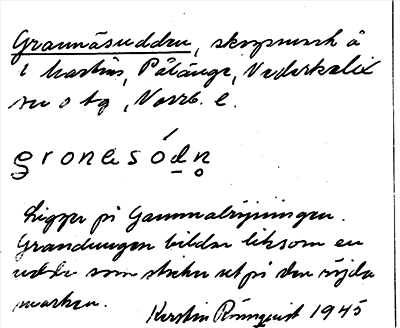 Grannäsudden, skogsmark å
i Martins, Pålänge, Nederkalix
sn o tg, Norrb. l.
gronesódn
Ligger på Gammalröjningen.
Grandungen bildar liksom en
udde som sticker ut på den röjda
marken.
Kerstin Rönnqvist 1945